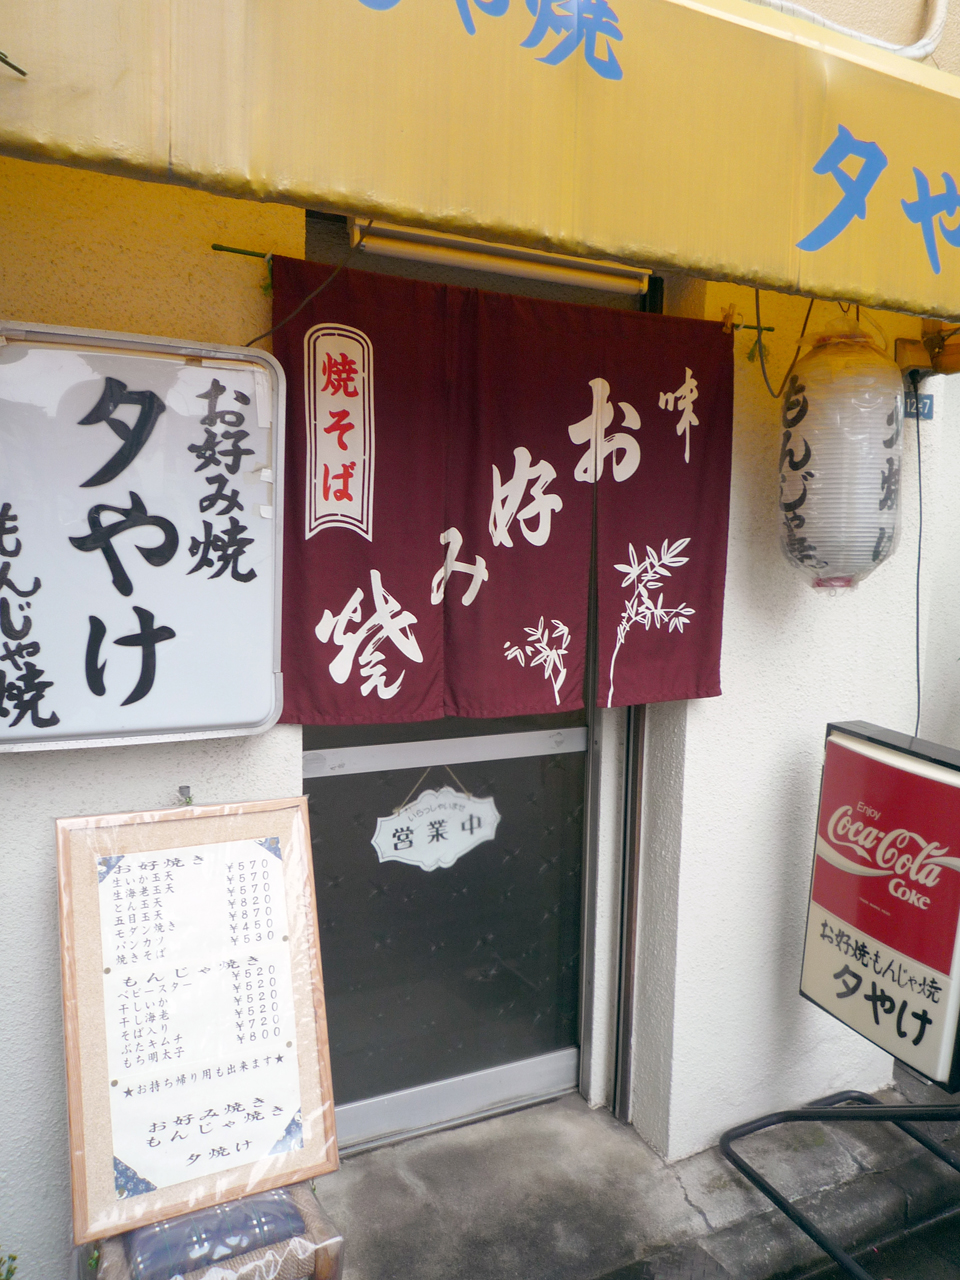 ゃ焼
夕や
お好み焼
夕やけ
もんじゃ焼
焼そば
味
お好み焼
もんじゃ焼
12-7
いらっしゃいませ
営業中
お好焼き
生いか玉天 ¥570
生海老玉天 ¥570
とん玉天 ¥570
五目玉天 ¥820
モダン焼き ¥870
パンカツ ¥450
焼きそば ¥530
もんじゃ焼き
ベビースター ¥520
干しいか ¥520
干し海老 ¥520
そば入り ¥520
ぶたキムチ ¥720
もち明太子 ¥800
★お持ち帰り用も出来ます★
お好み焼き
もんじゃ焼き
夕焼け
Enjoy
Coca-Cola
Coke
お好焼・もんじゃ焼
夕やけ